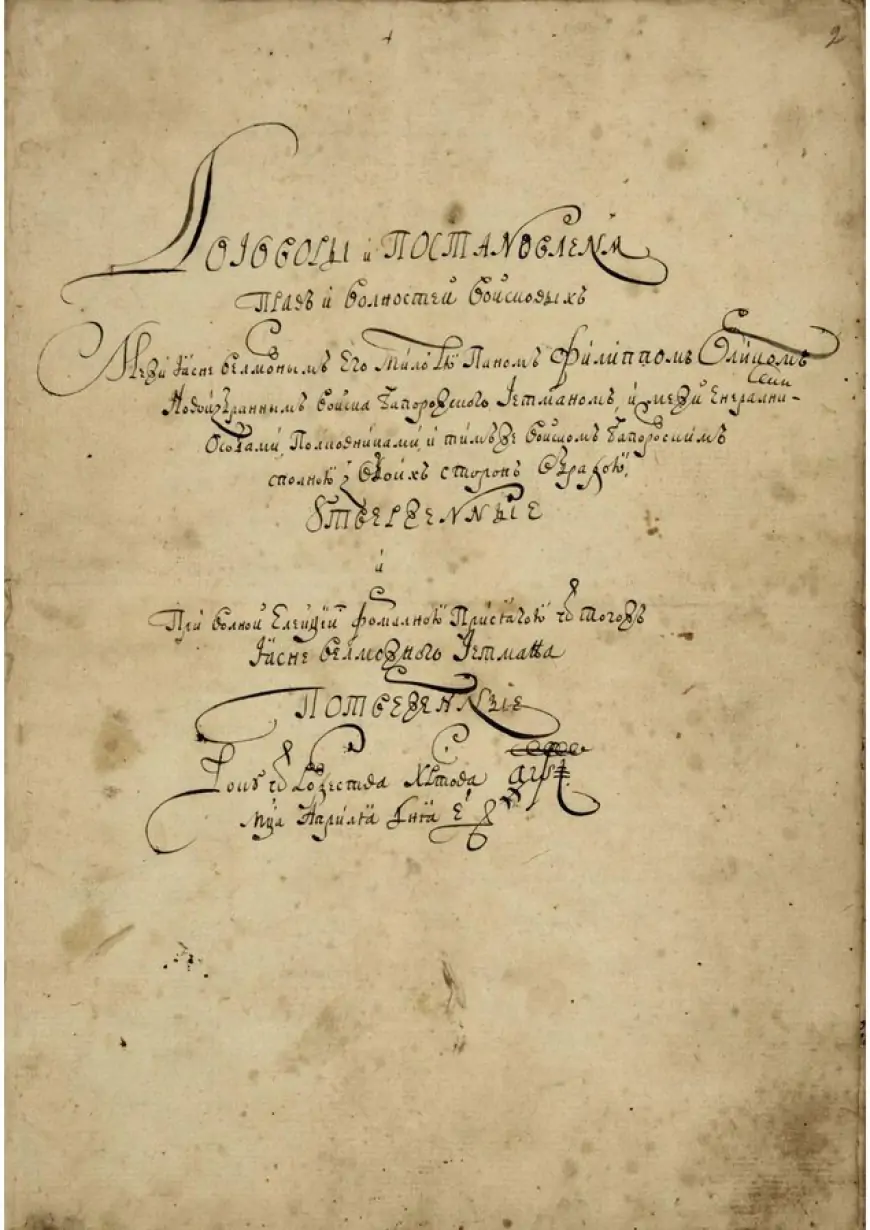 2
Договоры и Постановленя
Правъ и волностей войсковыхъ
Межи Ясне велможнымъ Его Милостю Паномъ Филиппомъ Орликомъ
Новоизбраннымъ войска Запорожского Гетманомъ, и межи Енерални-
Особами, Полковниками, и тимъже войскомъ Запорозскимъ
сполною з обоихъ сторонъ обрадою,
Утвержденные
и
При волной Елекціи формалною Присягою ѿ тогожъ
Ясне велможного Гетмана
Потвержденные
Року ѿ Рожества Христова аѱі
мця Априля дня є